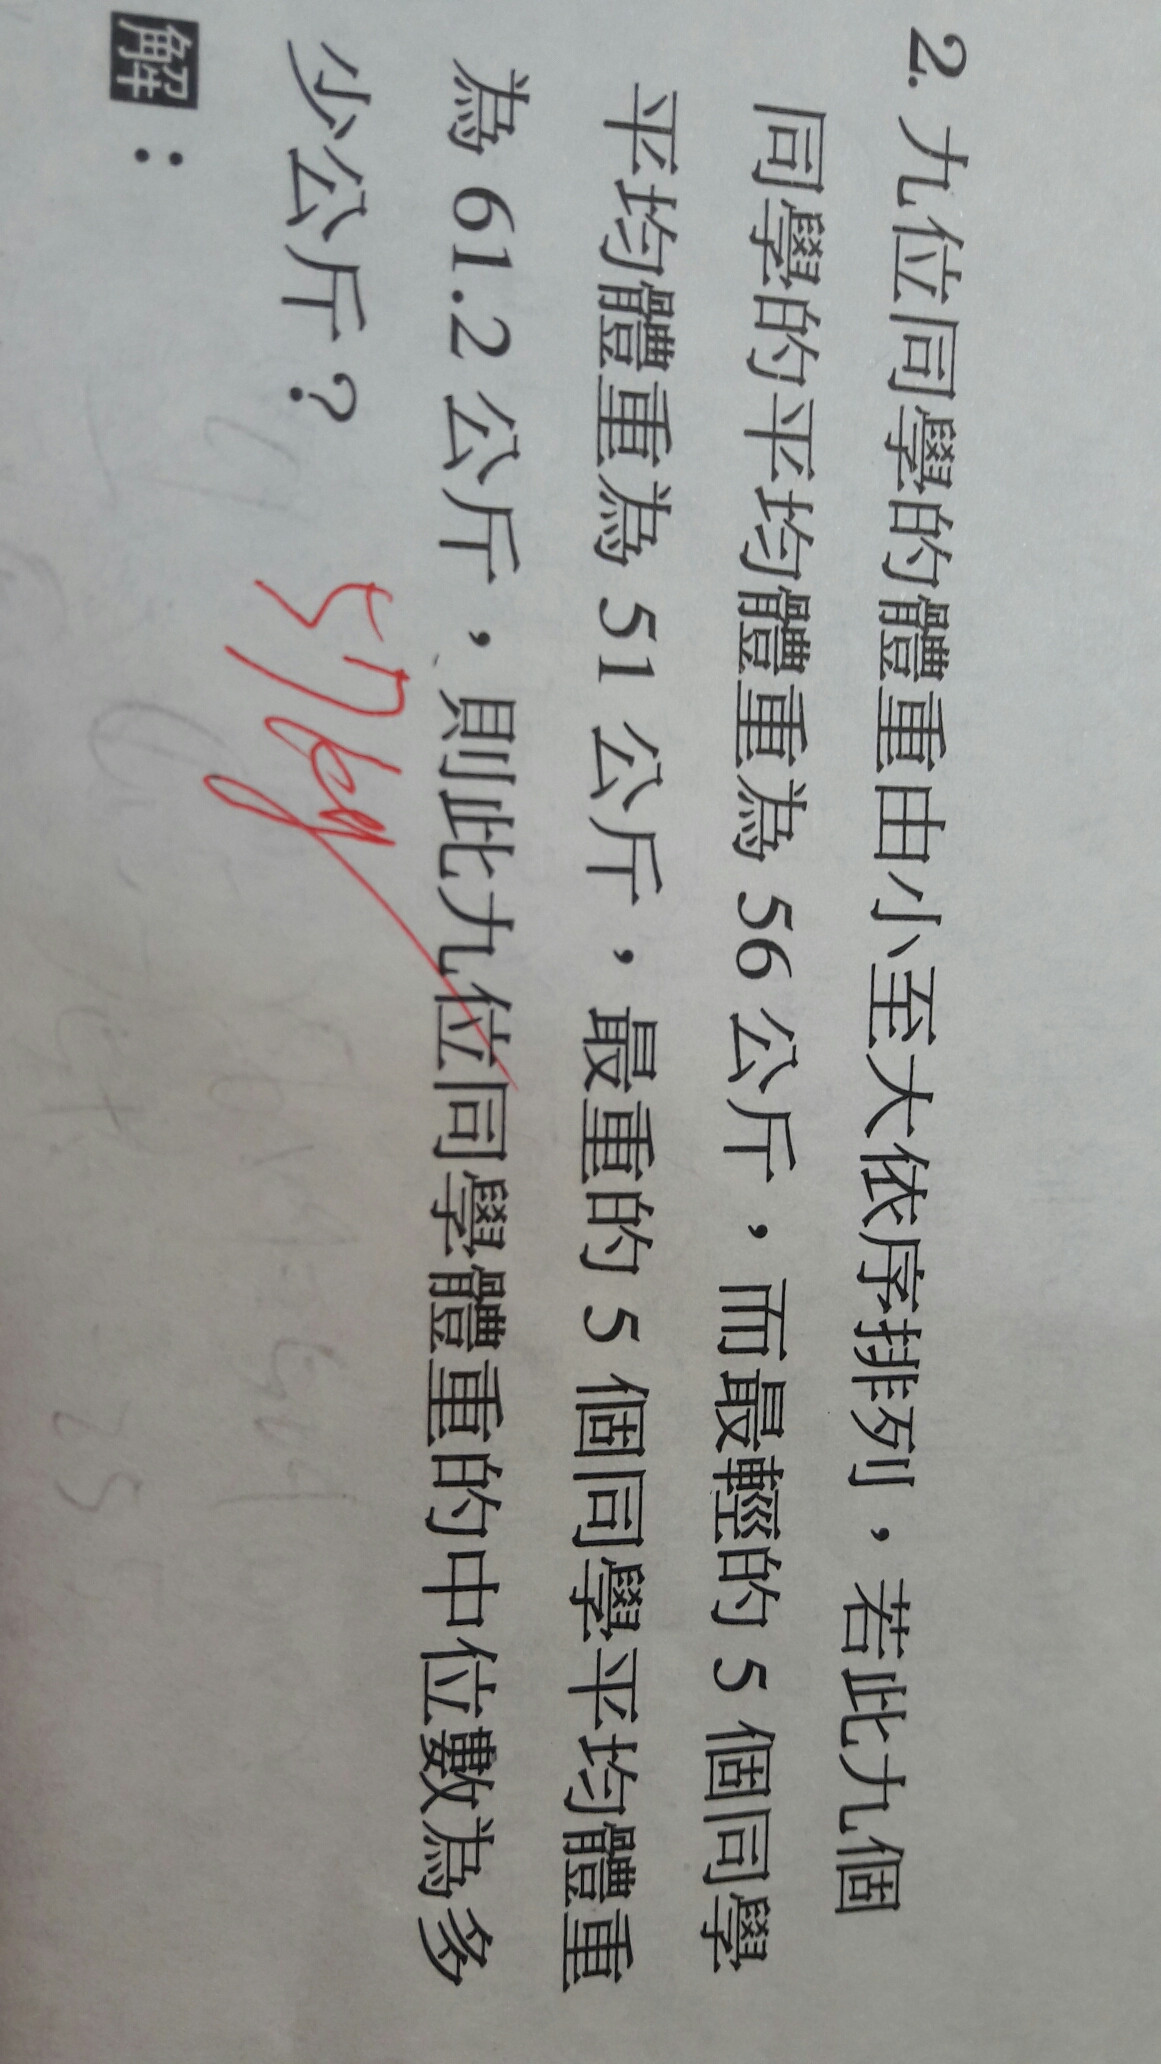 2. 九位同學的體重由小至大依序排列，若此九個
同學的平均體重為 56 公斤，而最輕的 5 個同學
平均體重為 51 公斤，最重的 5 個同學平均體重
為 61.2 公斤，則此九位同學體重的中位數為多
少公斤？
57kg
解：